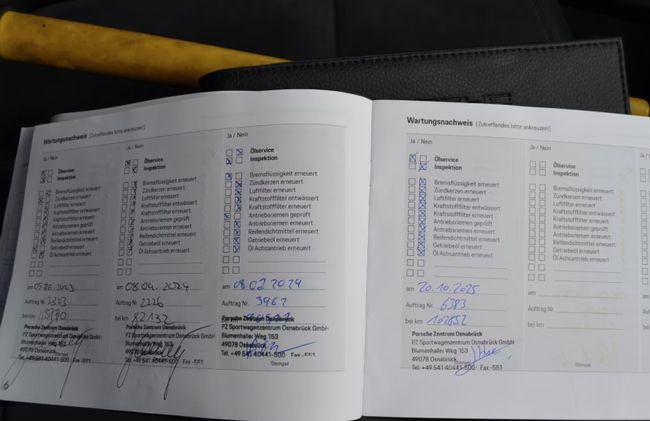 Wartungsnachweis (Zutreffendes bitte ankreuzen)
Ja / Nein
Ölservice
Inspektion
Bremsflüssigkeit erneuert
Zündkerzen erneuert
Luftfilter erneuert
Kraftstofffilter entwässert
Kraftstofffilter erneuert
Antriebsriemen geprüft
Antriebsriemen erneuert
Reifendichtmittel erneuert
Getriebeöl erneuert
Öl Achsantrieb erneuert
am 05.06.2023
Auftrag Nr.
bei km
Porsche Zentrum Osnabrück
PZ Sportwagenzentrum
Blumenhaller Weg 153
49078 Osnabrück
Tel. +49 541 40441-500
Ja / Nein
Ölservice
Inspektion
Bremsflüssigkeit erneuert
Zündkerzen erneuert
Luftfilter erneuert
Kraftstofffilter entwässert
Kraftstofffilter erneuert
Antriebsriemen geprüft
Antriebsriemen erneuert
Reifendichtmittel erneuert
Getriebeöl erneuert
Öl Achsantrieb erneuert
am 08.04.2024
Auftrag Nr. 2226
bei km 82132
Porsche Zentrum Osnabrück
PZ Sportwagenzentrum Osnabrück GmbH
Blumenhaller Weg 153
49078 Osnabrück
Tel. +49 541 40441-500 Fax -551
Ja / Nein
Ölservice
Inspektion
Bremsflüssigkeit erneuert
Zündkerzen erneuert
Luftfilter erneuert
Kraftstofffilter entwässert
Kraftstofffilter erneuert
Antriebsriemen geprüft
Antriebsriemen erneuert
Reifendichtmittel erneuert
Getriebeöl erneuert
Öl Achsantrieb erneuert
am
Auftrag Nr. 3962
bei km
Porsche Zentrum Osnabrück
PZ Sportwagenzentrum Osnabrück GmbH
Blumenhaller Weg 153
49078 Osnabrück
Tel. +49 541 40441-500 Fax -551
Stempel
Wartungsnachweis (Zutreffendes bitte ankreuzen)
Ja / Nein
Ölservice
Inspektion
Bremsflüssigkeit erneuert
Zündkerzen erneuert
Luftfilter erneuert
Kraftstofffilter entwässert
Kraftstofffilter erneuert
Antriebsriemen geprüft
Antriebsriemen erneuert
Reifendichtmittel erneuert
Getriebeöl erneuert
Öl Achsantrieb erneuert
am 20.10.2025
Auftrag Nr. 6983
bei km 102852
Porsche Zentrum Osnabrück
PZ Sportwagenzentrum Osnabrück GmbH
Blumenhaller Weg 153
49078 Osnabrück
Tel. +49 541 40441-500 Fax -551
Stempel
Ja / Nein
Ölservice
Inspektion
Bremsflüssigkeit erneuert
Zündkerzen erneuert
Luftfilter erneuert
Kraftstofffilter entwässert
Kraftstofffilter erneuert
Antriebsriemen geprüft
Antriebsriemen erneuert
Reifendichtmittel erneuert
Getriebeöl erneuert
Öl Achsantrieb erneuert
am
Auftrag Nr.
bei km
Stempel